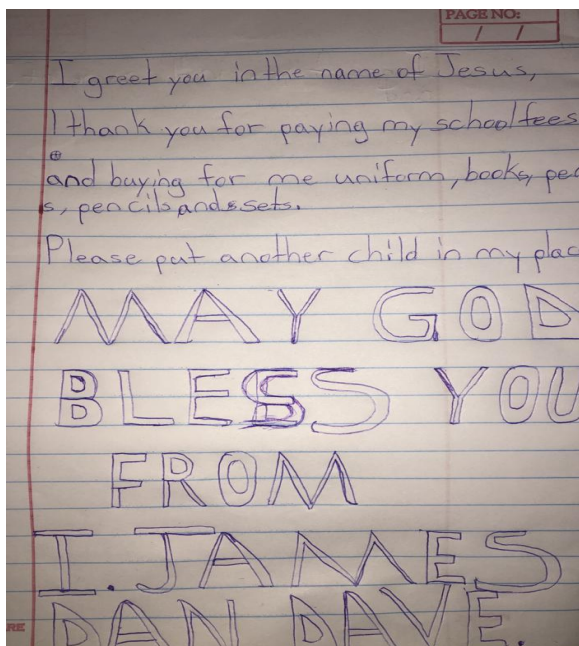 PAGE NO:
/ /
I greet you in the name of Jesus,
I thank you for paying my school fees
and buying for me uniform, books, pe
s, pencils and sets.
Please put another child in my plac
MAY GOD
BLESS YOU
FROM
I. JAMES
DAN DAVE.
RE